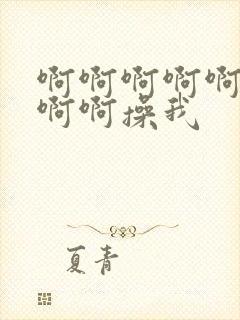 啊啊啊啊啊
啊啊操我
夏青